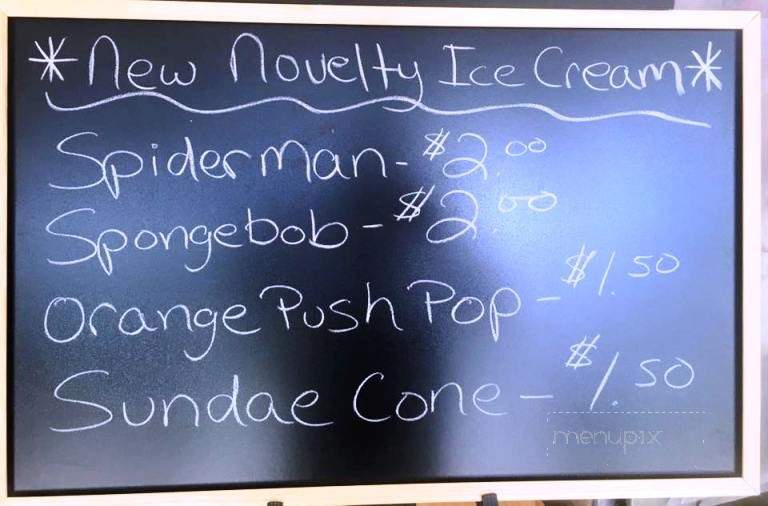 *New Novelty Ice Cream*
Spiderman - $2.00
Spongebob - $2.00
Orange Push Pop - $1.50
Sundae Cone - $1.50
menupix